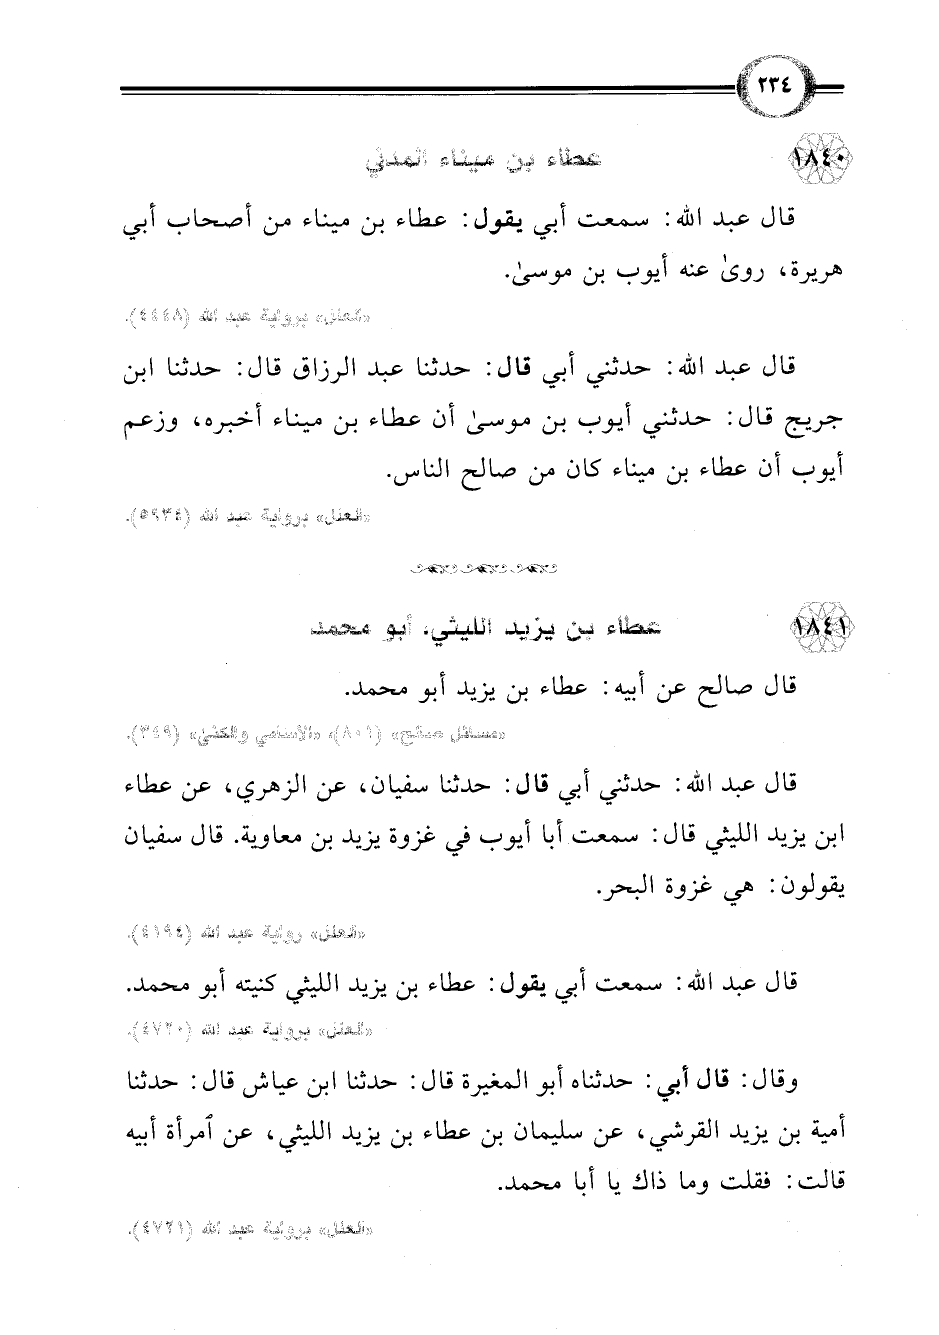 ٢٣٤
١٨٤٠ عطاء بن ميناء المدني
قال عبد الله: سمعت أبي يقول: عطاء بن ميناء من أصحاب أبي
هريرة، روىٰ عنه أيوب بن موسىٰ.
«العلل» برواية عبد الله (٤٤٤٨).
قال عبد الله: حدثني أبي قال: حدثنا عبد الرزاق قال: حدثنا ابن
جريج قال: حدثني أيوب بن موسىٰ أن عطاء بن ميناء أخبره، وزعم
أيوب أن عطاء بن ميناء كان من صالح الناس.
«العلل» برواية عبد الله (٥٩٣٤).
١٨٤١ عطاء بن يزيد الليثي، أبو محمد
قال صالح عن أبيه: عطاء بن يزيد أبو محمد.
«مسائل صالح» (٨٠٦)، «الأسامي والكنىٰ» (٣٤٩).
قال عبد الله: حدثني أبي قال: حدثنا سفيان، عن الزهري، عن عطاء
ابن يزيد الليثي قال: سمعت أبا أيوب في غزوة يزيد بن معاوية. قال سفيان
يقولون: هي غزوة البحر.
«العلل» رواية عبد الله (٤١٩٤).
قال عبد الله: سمعت أبي يقول: عطاء بن يزيد الليثي كنيته أبو محمد.
«العلل» برواية عبد الله (٤٧٢٠).
وقال: قال أبي: حدثناه أبو المغيرة قال: حدثنا ابن عياش قال: حدثنا
أمية بن يزيد القرشي، عن سليمان بن عطاء بن يزيد الليثي، عن ٱمرأة أبيه
قالت: فقلت وما ذاك يا أبا محمد.
«العلل» برواية عبد الله (٤٧٢١).